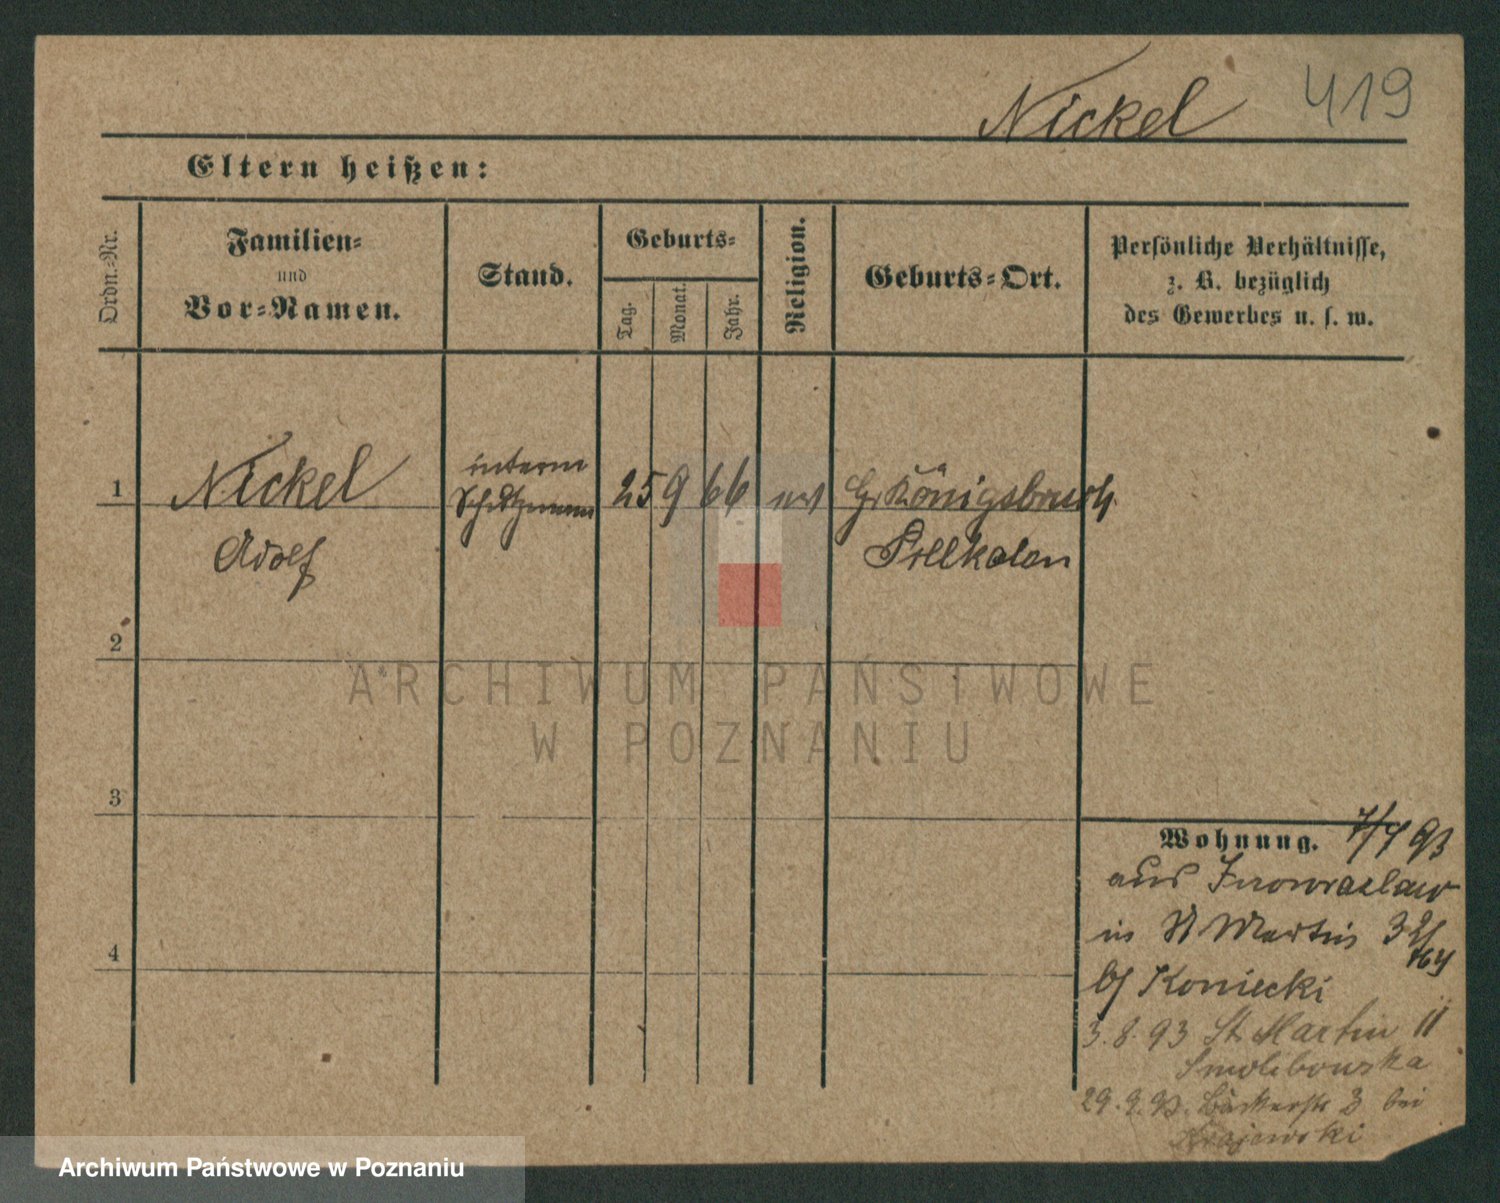 Nickel 419
Eltern heißen:
Ordn.-Nr.
Familien-
und
Vor-Namen.
Stand.
Geburts-
Tag.
Monat.
Jahr.
Religion.
Geburts-Ort.
Persönliche Verhältnisse,
z. B. bezüglich
des Gewerbes u. s. w.
1
Nickel
Adolf
interm
Schutzmann
25 9 66
Gr. Königsbruch
Pillkalen
2
3
4
Wohnung.
7/4 93
aus Inowrazlaw
in St Martin
b/ Koniecki
3.8.93 St. Martin 11
29.9.93. Bäckerstr 3 bei
Krajewski
ARCHIWUM PAŃSTWOWE
W POZNANIU
Archiwum Państwowe w Poznaniu